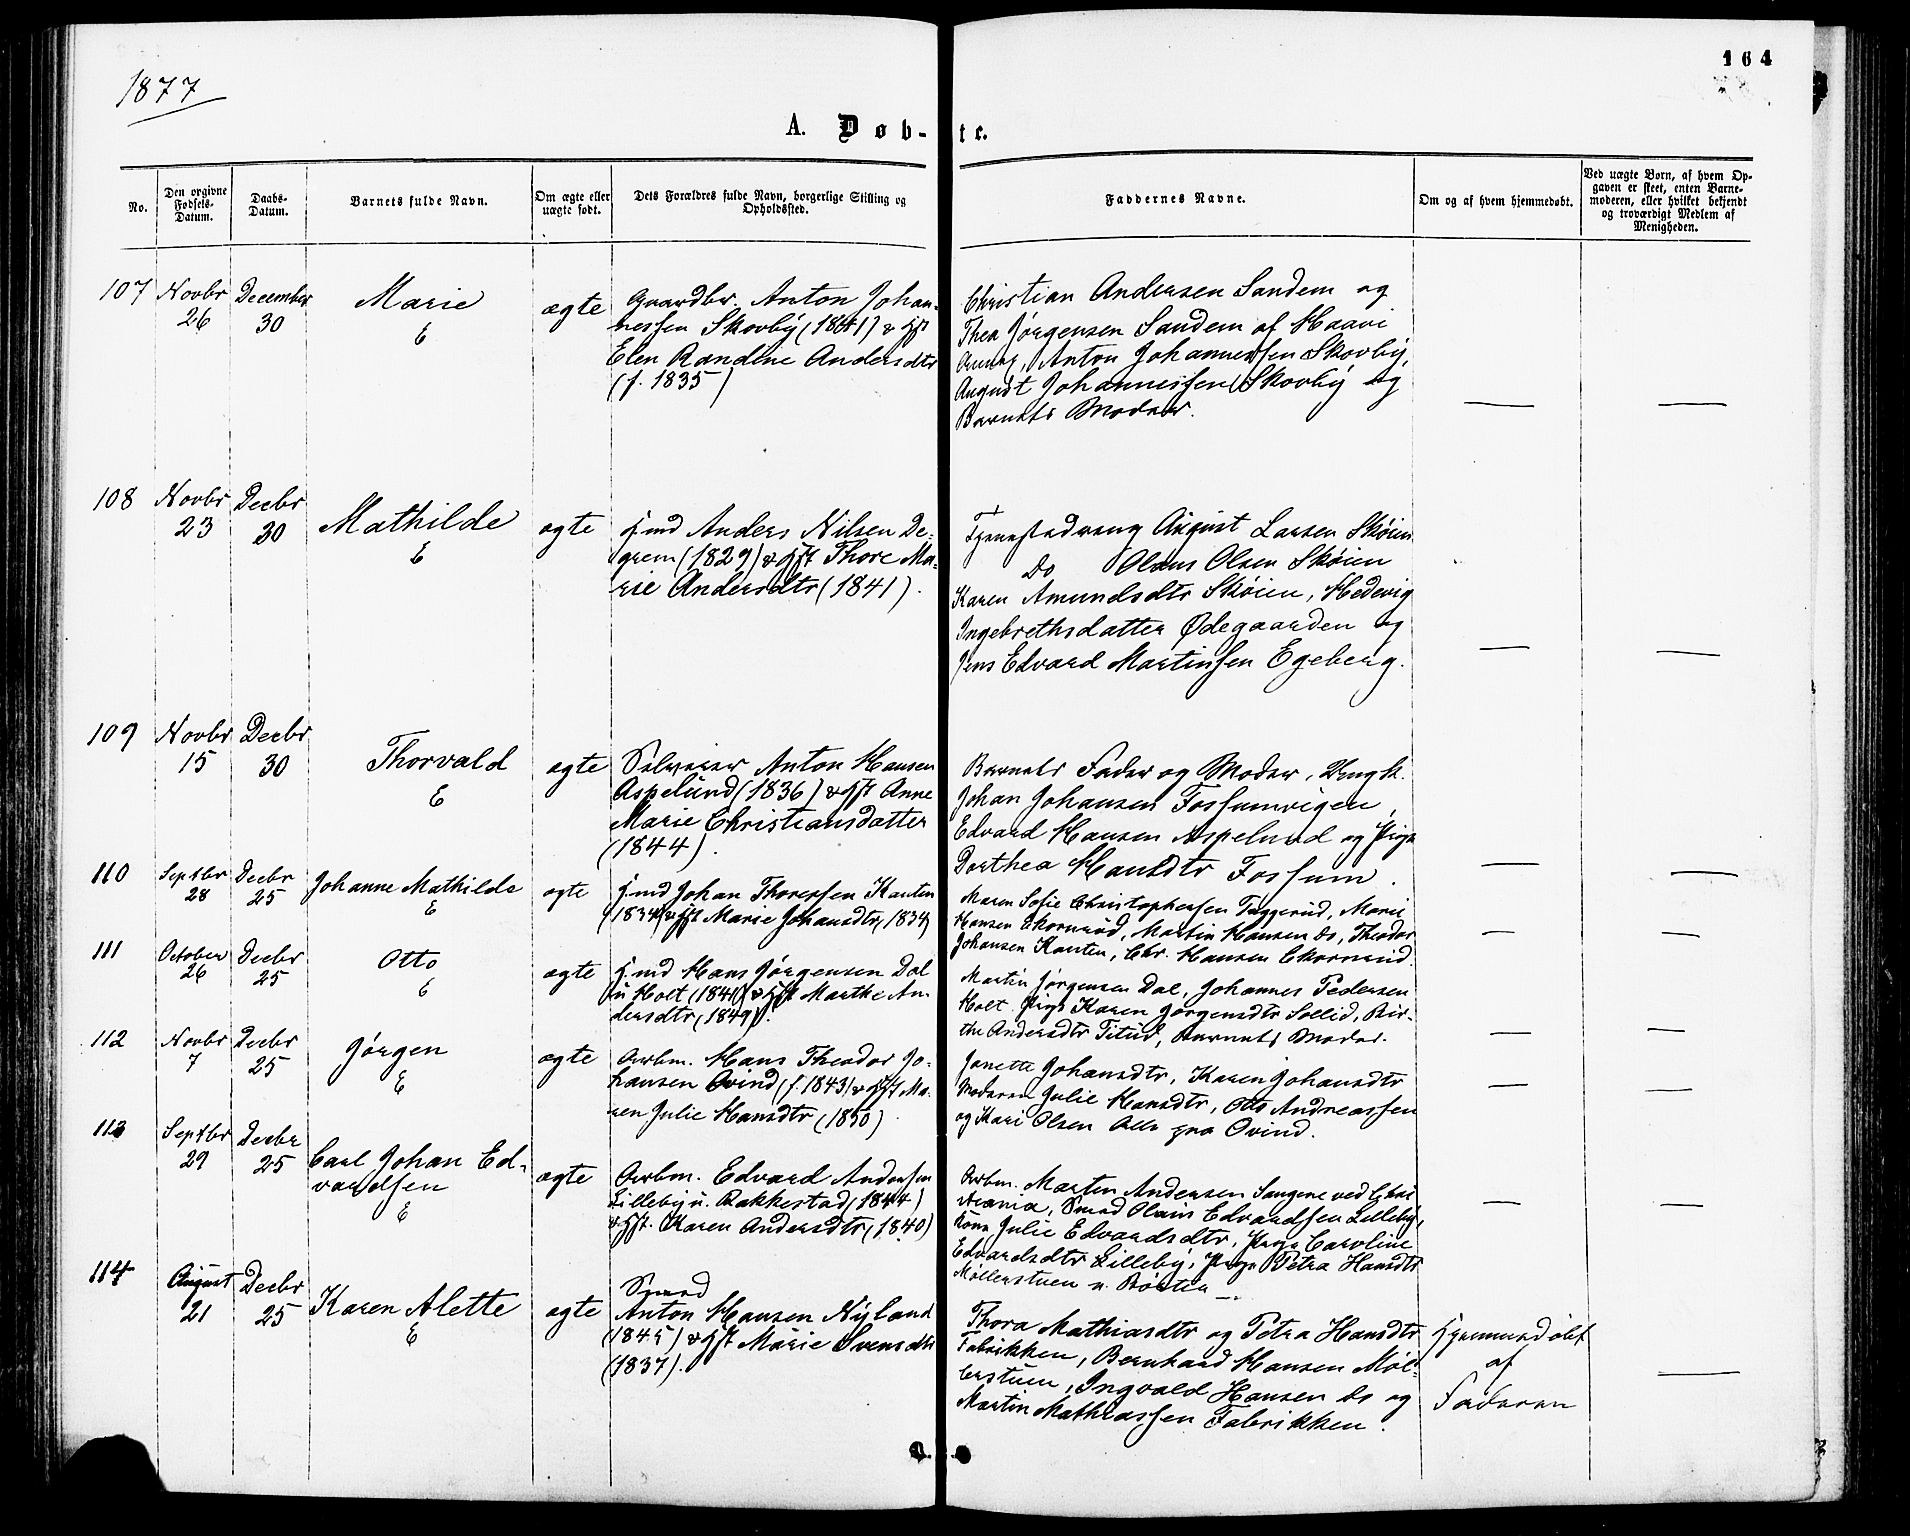 1877
164
A. Døb-
te.
No.
Den opgivne Fødsels-Datum.
Daabs-Datum.
Barnets fulde Navn.
Om ægte eller uægte født.
Dets Forældres fulde Navn, borgerlige Stilling og Opholdssted.
Faddernes Navne.
Om og af hvem hjemmedøbt.
Ved uægte Born, af hvem Op-
gaven er skeet, enten Barne-
moderen, eller hvilket bekjendt
og troværdigt Medlem af
Menigheden.
107 Novbr 26 December 30 Marie E ægte
Gaardbr. Anton Johan-
nessen Skovby (1841) & Hst
Elen Randine Andersdtr
(f. 1835)
Christian Andersen Sandem og
Thea Jørgensen Sandem af Haavi
Anton Johannessen Skovby,
August Johannessen Skovby og
Barnets Moder.
108 Novbr 23 Decbr 30 Mathilde E ægte
Hmd Anders Nilsen De-
grem (1829) & Hst Thore Ma-
rie Andersdtr (1841).
Tjenestedreng August Larsen Skøien
Do Olaus Olsen Skøien
Karen Amundsdtr Skøien, Hedevig
Ingebrethsdatter Ødegaarden og
Jens Edvard Martinsen Egeberg.
109 Novbr 15 Decbr 30 Thorvald E ægte
Selveier Anton Hansen
Aspelund (1836) & Hst Anne
Marie Christiansdatter
(1844).
Barnets Fader og Moder, Ungk.
Johan Johansen Fossumvigen,
Edvard Hansen Aspelund og Pige
Dorthea Hansdtr Fossum.
110 Septbr 28 Decbr 25 Johanne Mathilde E ægte
Hmd Johan Thoressen Kanten
(1834) & Hst Marie Johansdtr (1834)
Maren Sofie Christophersen Taggerud, Marie
Hansen Ekornrød, Martin Hansen do, Theodor
Johansen Kanten, Chr. Hansen Ekornrud.
111 October 26 Decbr 25 Otto E ægte
Hmd Hans Jørgensen Dal
u Holt (1841) & Hst Marthe An-
dersdtr (1849).
Martin Jørgensen Dal, Johannes Pedersen
Holt Pige Karen Jørgensdtr Sollid, Bir-
the Andersdtr Titud, Barnets Moder.
112 Novbr 7 Decbr 25 Jørgen E ægte
Arbm. Hans Theodor Jo-
hansen Ovind (f. 1843) & Hst Ma-
ren Julie Hansdtr (1850).
Janette Johansdtr, Karen Johansdtr
Moderen Julie Hansdtr, Otto Andreassen
og Kari Olsen Alle paa Ovind.
113 Septbr 29 Decbr 25 Carl Johan Ed-
vardsen E ægte
Arbm. Edvard Andersen
Lilleby u. Rakkestad (1844)
& Hst. Karen Andersdtr (1840)
Arbm. Martin Andersen Saugene ved Chri
stiania, Smed Olain Edvardsen Lilleby,
Kone Julie Edvardsdtr, Pige Caroline
Edvardsdtr Lilleby, Pige Petra Hansdtr
Møllerstuen u.
114 August 21 Decbr 25 Karen Alette E ægte
Smed
Anton Hansen Nyland
(1845) & Hst Marie Svensdtr
(1837).
Thora Mathiasdtr og Petra Hansdtr
Fabrikken, Bernhard Hansen Møl-
lerstuen, Ingvald Hansen do og
Martin Mathiassen Fabrikken.
Hjemmedøbt
af
Faderen